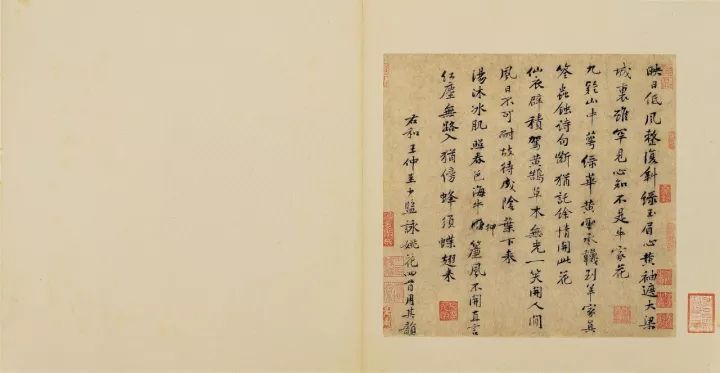 映日低風整復斜綠玉眉心黃袖遮大梁
城裏雖罕見心知不是牛家花
九疑山中萼綠華黃雲承韈到羊家真
筌蟲蝕詩句斷猶託餘情開此花
仙衣襞積駕黃鵠草木無光一笑開人間
風日不可耐故待成陰葉下來
湯沐冰肌照春色海牛押簾風不開直言
紅塵無路入猶傍蜂須蝶翅來
右和王仲至少監詠姚花四首用其韻